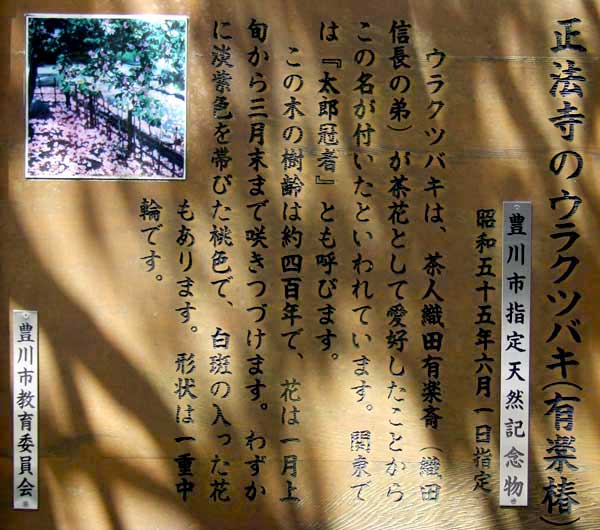 正法寺のウラクツバキ(有楽椿)
豊川市指定天然記念物
昭和五十五年六月一日指定
ウラクツバキは、茶人織田有楽斎(織田
信長の弟)が茶花として愛好したことから
この名が付いたといわれています。関東で
は『太郎冠者』とも呼びます。
この木の樹齢は約四百年で、花は一月上
旬から三月末まで咲きつづけます。わずか
に淡紫色を帯びた桃色で、白斑の入った花
もあります。形状は一重中
輪です。
豊川市教育委員会